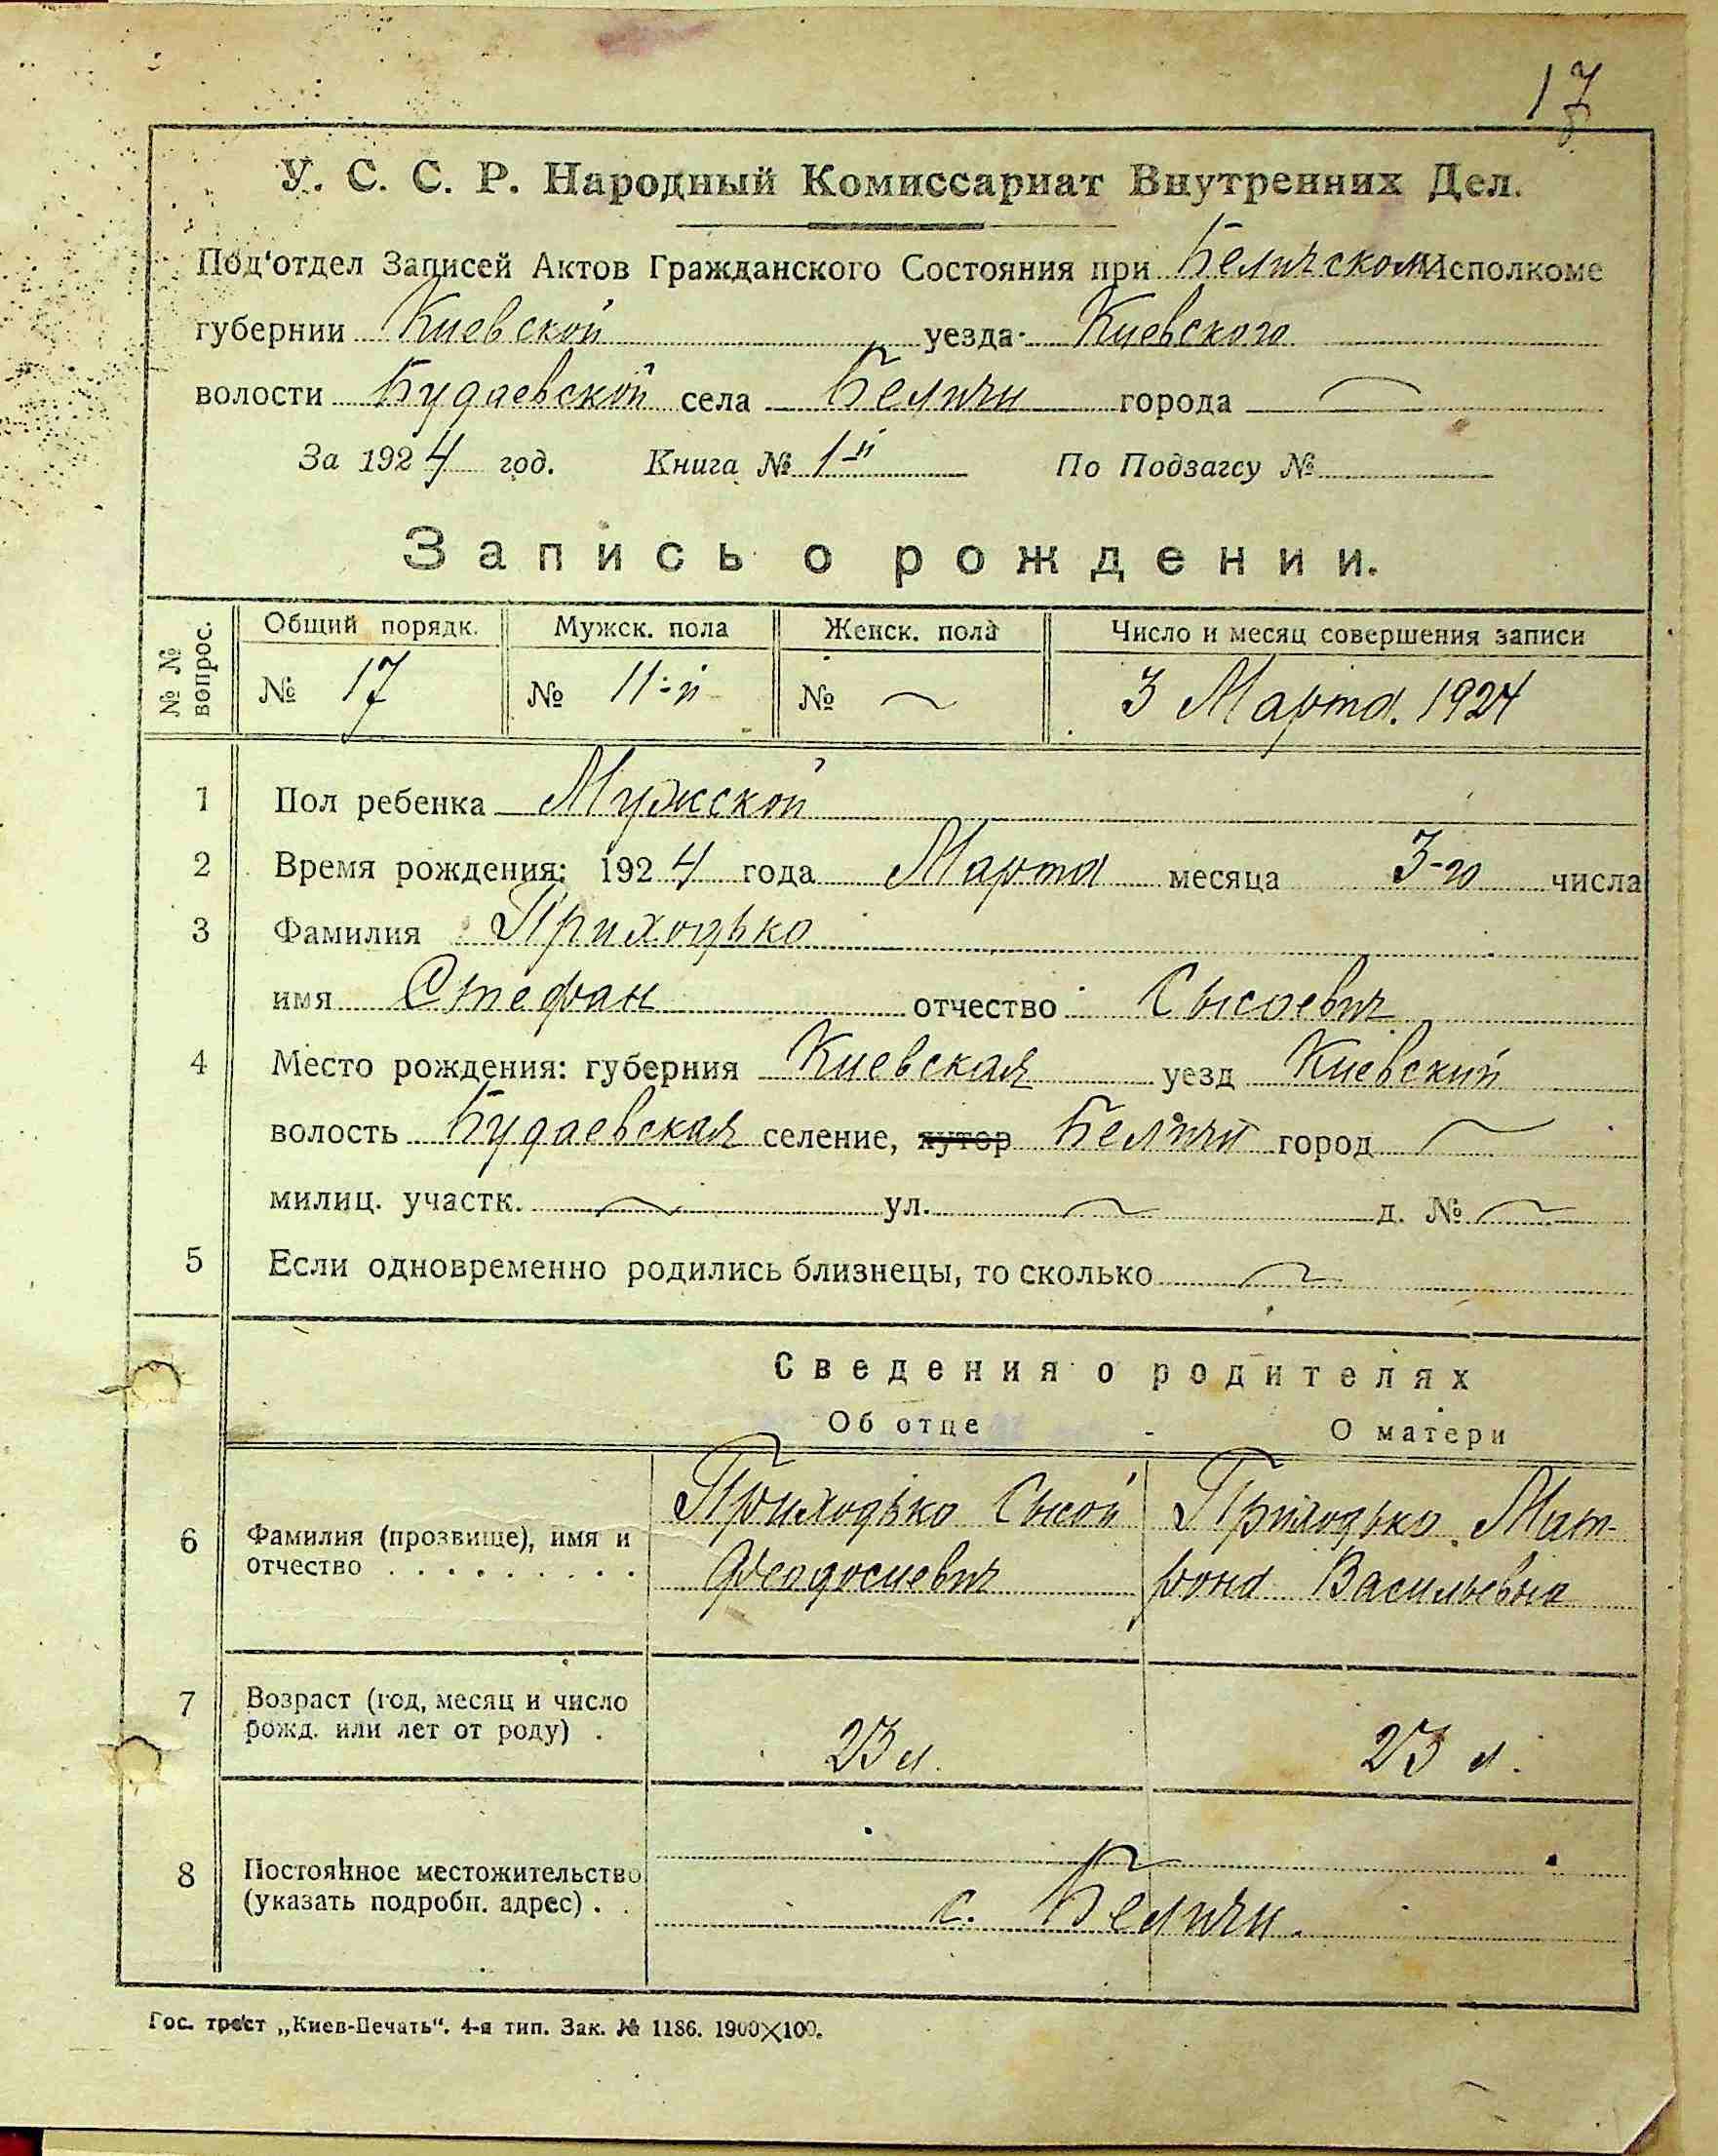 17
У. С. С. Р. Народный Комиссариат Внутренних Дел.
Под'отдел Записей Актов Гражданского Состояния при Беличском Исполкоме
губернии Киевской уезда Киевского
волости Будаевской села Беличи города
За 1924 год. Книга № 1-й По Подзагсу №
Запись о рождении.
№ № вопрос. Общий порядк. Мужск. пола Женск. пола Число и месяц совершения записи
№ 17 № 11-й № 3 Марта. 1924
1 Пол ребенка Мужской
2 Время рождения: 1924 года Марта месяца 3-го числа
3 Фамилия Приходько
имя Стефан отчество Сысоевич
4 Место рождения: губерния Киевская уезд Киевский
волость Будаевская селение, хутор Беличи город
милиц. участк. ул. д. №
5 Если одновременно родились близнецы, то сколько
Сведения о родителях
Об отце О матери
6 Фамилия (прозвище), имя и отчество Приходько Сысой Феодосиевич Приходько Мат-рона Васильевна
7 Возраст (год, месяц и число рожд. или лет от роду) . 23 л. 23 л.
8 Постоянное местожительство (указать подробн. адрес) . . с. Беличи.
Гос. трест „Киев-Печать“. 4-я тип. Зак. № 1186. 1900×100.